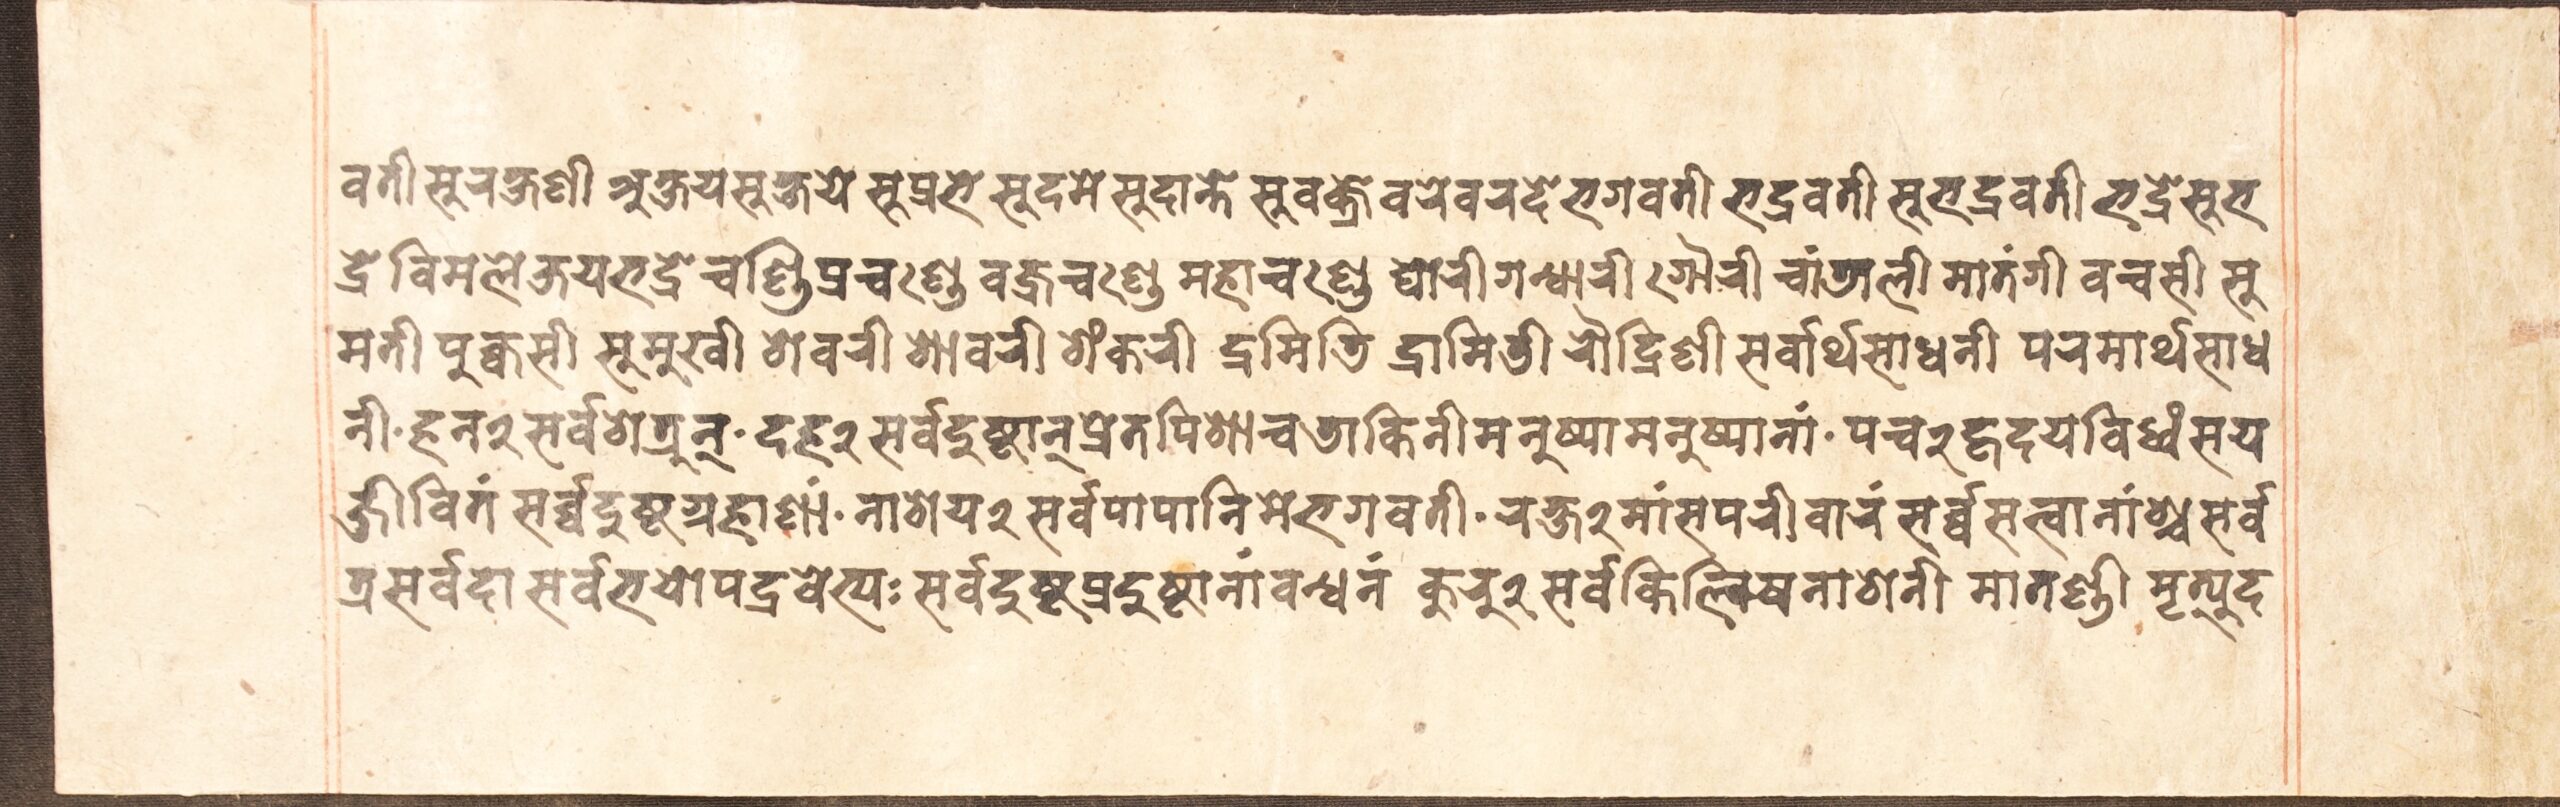 वती सुरक्षणी श्रुक्षयसुक्षये सूप्रभे सुदमे सुदान्ते सुवक्त्रे वरेवरदे भगवती भद्रवती सुभद्रवती भद्रेसुभ
द्रे विमले जयभद्रे चण्डिप्रचण्डे वज्रचण्डे महाचण्डे घोरी गन्धारी गौरी चांडाली मातंगी वचसी सु
मती पुक्कसी सुमुखी शवरी शावरी शंकरी द्रमिति द्रामिती रौद्रिणी सर्वार्थसाधनी परमार्थसाध
नी॰ हन२ सर्वशत्रून्॰ दह२ सर्वदुष्टान्प्रेतपिशाचडाकिनीमनुष्यामनुष्यानां॰ पच२हृदयविध्वंसय
जीवितं सर्व्वदुष्टग्रहाणां॰ नाशय२ सर्वपापानिमेभगवती॰ रक्ष२मांसपरीवारं सर्व्वसत्वानांश्च सर्व
त्रसर्वदा सर्वभयोपद्रवेभ्यः सर्वदुष्टप्रदुष्टानांवन्धनं कुरु२ सर्वकिल्विषनाशनी मातण्डी मृत्युद